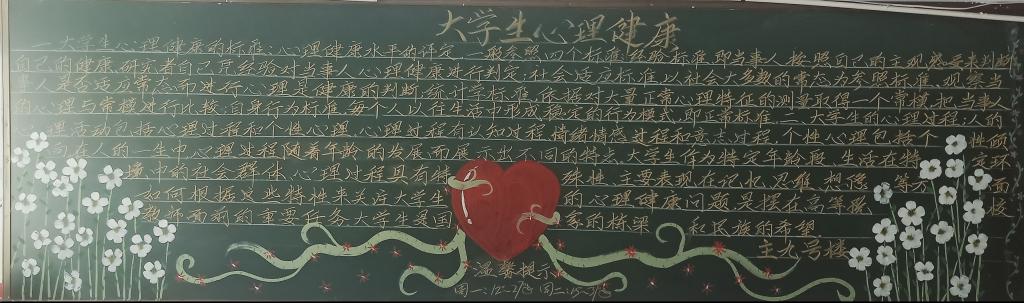 大学生心理健康
一.大学生心理健康的标准:心理健康水平的评定,一般参照四个标准:经验标准,即当事人按照自己的主观感受来判断
自己的健康,研究者自己凭经验对当事人心理健康进行判定,社会适应标准,以社会大多数的常态为参照标准,观察当
事人是否适应常态而进行心理是健康的判断,统计学标准,依据对大量正常心理特征的测量取得一个常模,把当事人
的心理与常模进行比较,自身行为标准,每个人以往生活中形成稳定的行为模式,即正常标准 二.大学生的心理过程:人的
心理活动包括心理过程和个性心理,心理过程有认知过程,情绪情感过程和意志过程,个性心理包括个 性倾
向,在人的一生中,心理过程随着年龄的发展而展示出不同的特点,大学生作为特定年龄段,生活在特 定环
境中的社会群体,心理过程具有特 殊性,主要表现在记忆,思维,想像 等方 面
如何根据这些特性来关注大学生 的心理健康问题,是摆在高等院 校
教师面前的重要任务,大学生是国 家的栋梁 和民族的希望
主九号楼
温馨提示
周一:12~2 周二: